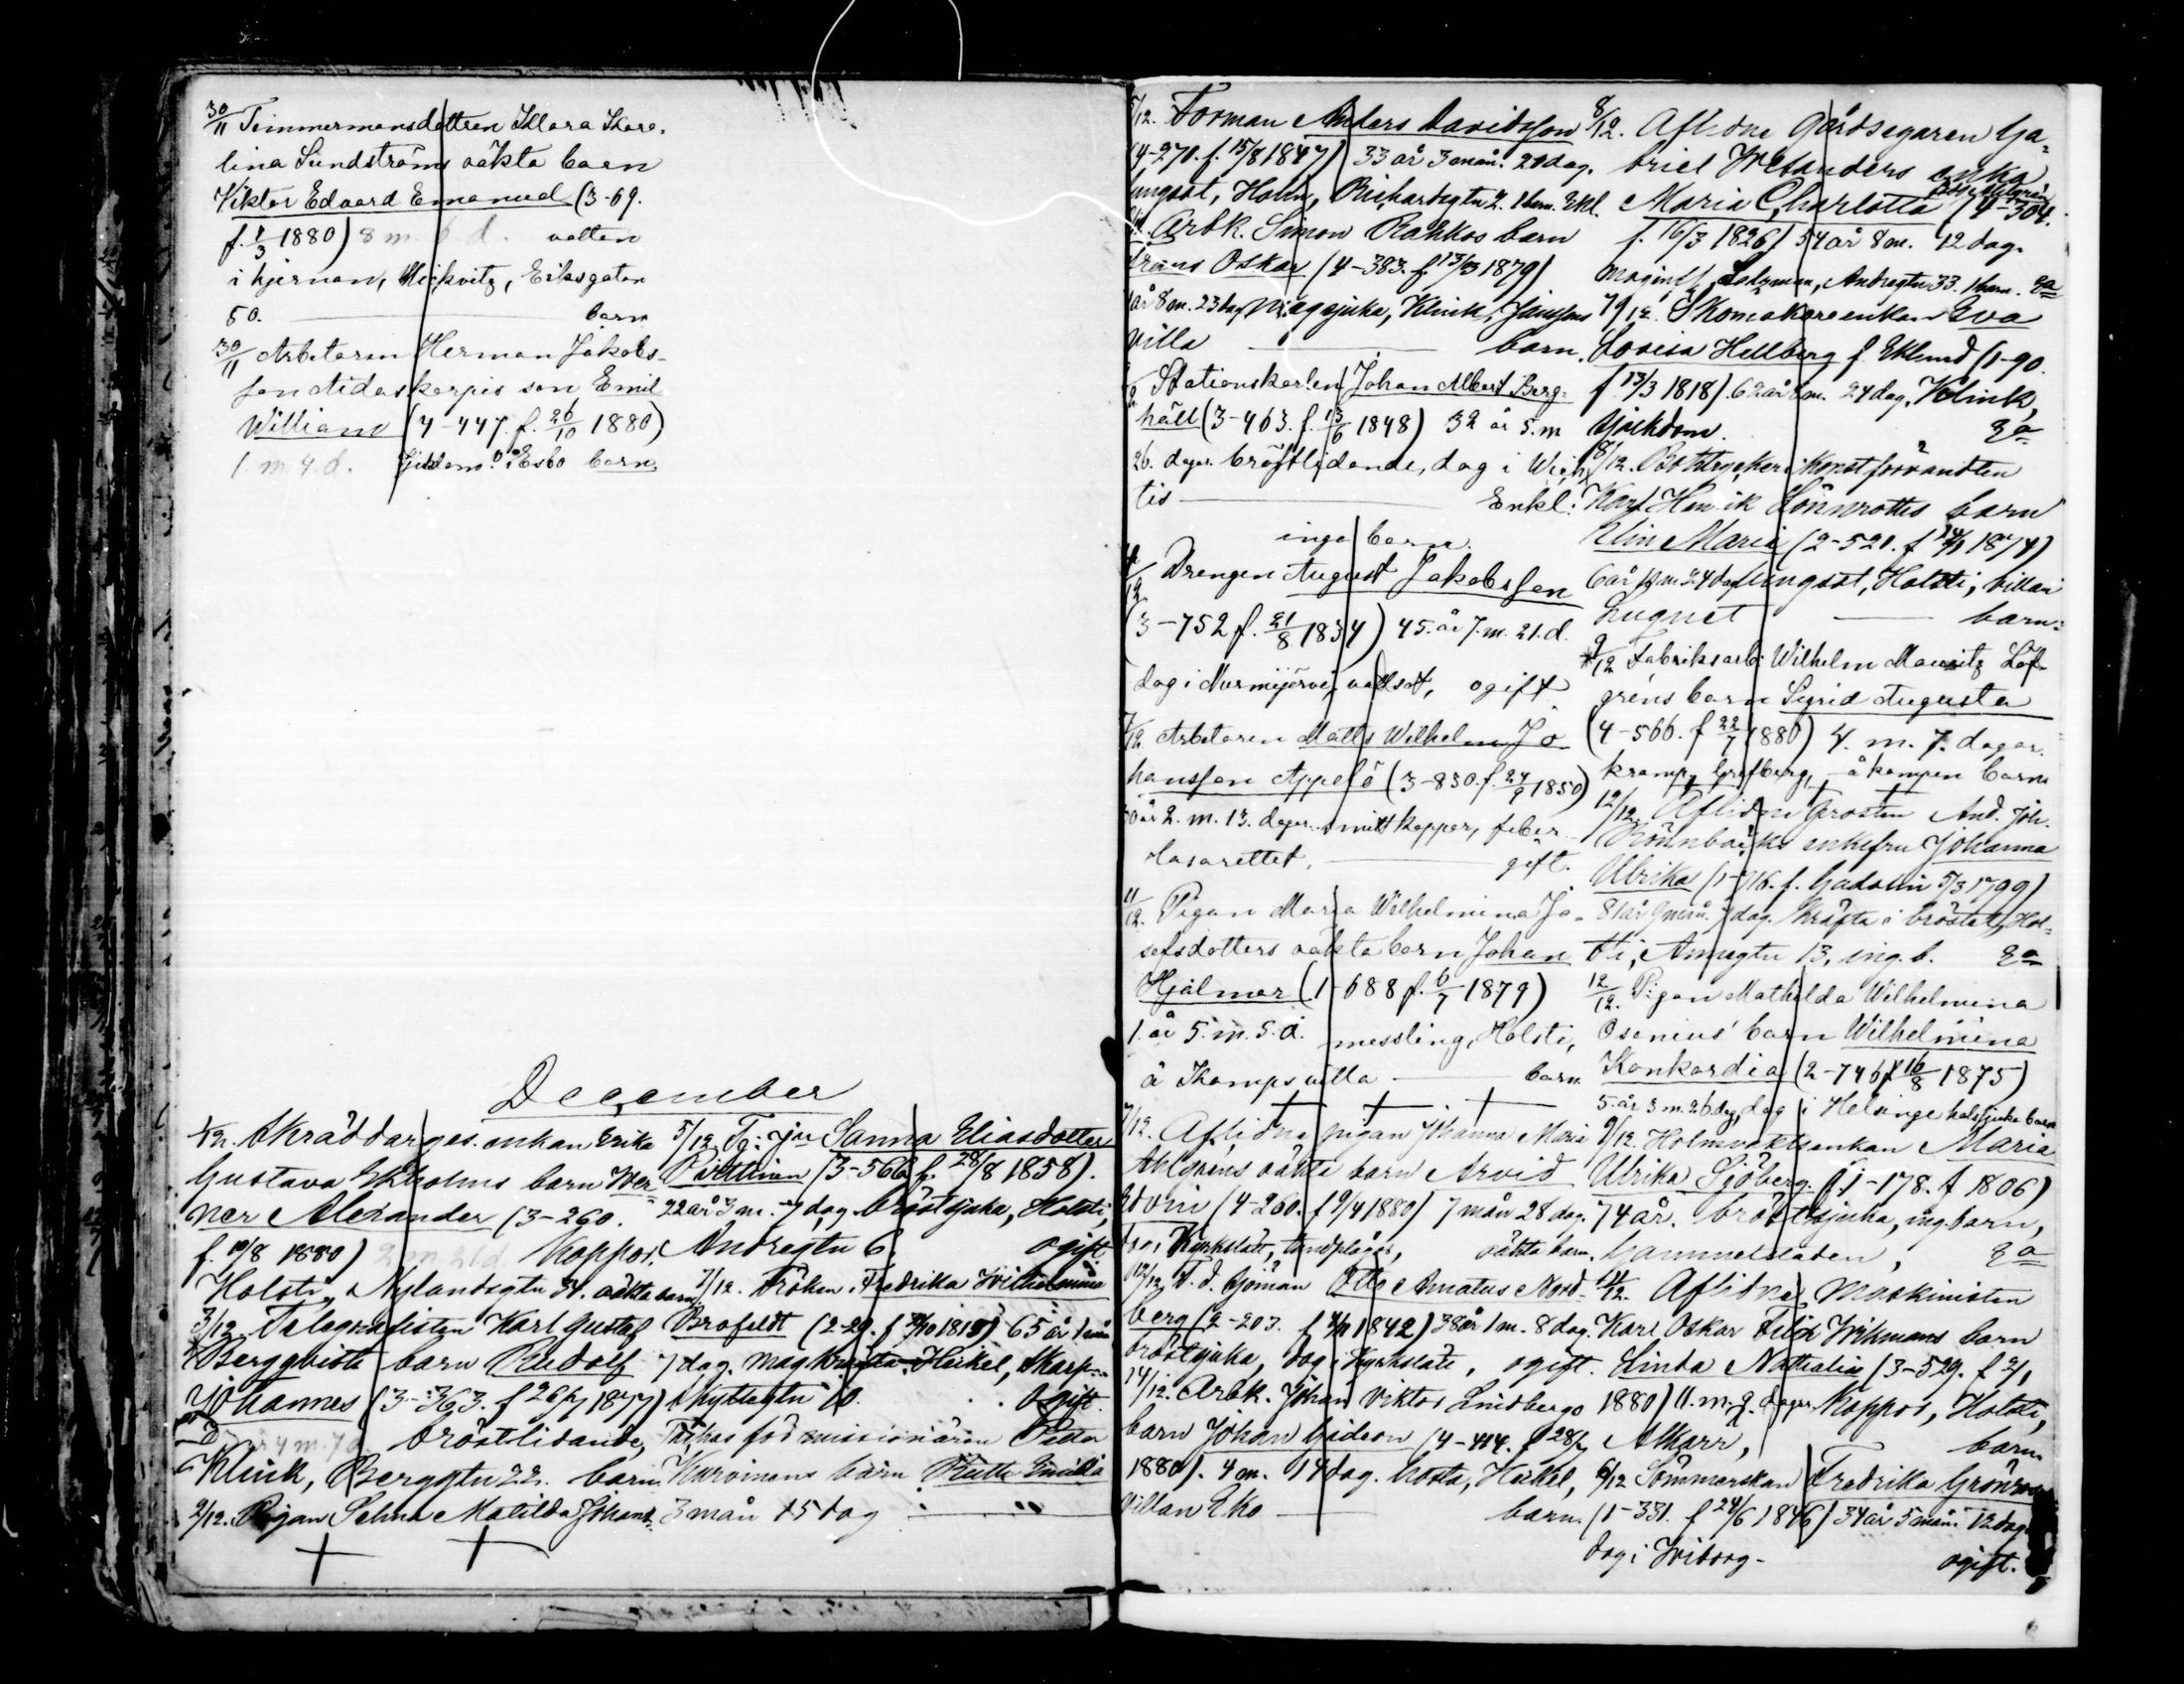 30/11 Timmermansdottren Klara Karo-
lina Sundströms oäkta barn
Viktor Edvard Emanuel (3-69.
f. 1/3 1880) 8 m. d. vatten
i hjernan, Heikvitz, Eriksgatan
50. barn
30/11 Arbetaren Herman Jakobs-
son son Emil
William (4-447. f. 26/10 1880)
1. m. 4. d. i Esbo barn.
December
1/12. Skräddarges. enkan Erika
Gustava Ekholms barn Wer-
ner Alexander (3-260.
f. 10/8 1880) 2 m. 21 d. Koppor.
Holsti, Nylandsgtn 34. oäkta barn
3/12. Telegrafisten Karl Gustaf
Bergqvists barn Rudolf
Johannes (3-363. f 26/7 1877)
4 m. 7 d. bröstlidande,
Klink, Berggtn 22. barn
2/12. Pigan Selma Matilda Johans-
5/12. Sanna Eliasdotter
(3-566 f. 28/8 1858).
22 år 3 m. 7 dag. bröstsjuka, Holsti,
Andregtn 6. ogift
7/12. Fröken Fredrika Wilhelmina
Brofeldt (2-29. f 1815) 65 år 1 mån
7 dag. magkräfta. Heikel, Skarp-
skyttegtn 10. ogift.
missionären Peter
Kurvinens barn Ruth Emilia
3 mån 15 dag
5/12. Forman Anders Davidsson
(4-270. f. 15/8 1847) 33 år 3 mån. 20 dag.
lungsot, Holm, Richardsgtn 2. 1 barn. Ekl.
Arbk. Simon Rahkos barn
Frans Oskar (4-383. f. 13/3 1879)
1 år 8 m. 23 dag Magsjuka, Klink, Janssons
villa barn.
Stationskarlen Johan Albert Berg-
häll (3-463. f. 13/6 1848) 32 år 5. m
26. dagar. bröstlidande, dog i Wich-
tis Enkl:
inga barn.
Drengen August Jakobsson
(3-752 f. 21/8 1834) 45. år 7. m. 21. d.
dog i Nurmijärvi, vattsot, ogift
7/12. Arbetaren Matts Wilhelm Jo-
hansson Appelö (3-830. f. 24/9 1850)
30 år 2. m. 13. dagar. smittkoppor, feber
lasarettet. gift.
11/12. Pigan Maria Wilhelmina Jo-
sefsdotters oäkta barn Johan
Hjalmar (1-688 f. 6/7 1879)
1. år 5. m. 5. d. messling, Holsti,
å Kamps villa barn
7/12. Aflidne pigan Johanna Maria
Ahlgréns oäkta barn Arvid
Edvin (4-260. f 9/4 1880) 7 mån 28 dag.
Kyrkslätt, tandplågor, oäkta barn.
12/12 F. d. Sjöman Otto Amatus Nord-
berg (2-203. f 1842) 38 år 1 m. 8 dag.
bröstsjuka, dog i Kyrkslätt, ogift.
14/12. Arbk. Johan Viktor Lindbergs
barn Johan Gideon (4-414. f 28/7
1880). 4 m. 14 dag. hosta, Heikel,
Villan Eko barn.
8/12. Aflidne Gårdsegaren Ga-
briel Welanders enka
Maria Charlotta (4-304.
f. 16/3 1826) 54 år 8 m. 12 dag.
maginfl., Salzman, Andregtn 33. 1 barn. Ea
7/12. Skomakareenkan Eva
Lovisa Hellberg f. Eklund (1-90.
f 13/3 1818). 62 år 8 m. 24 dag. Klink,
sjukdom. Ea
8/12. Boktryckerikonstförvandten
Karl Henrik Lönnrotts barn
Elin Maria (2-521. f 14/1 1874)
6 år m 24 dag lungsot, Holsti, villan
Lugnet barn.
9/12 Fabriksarb. Wilhelm Mauritz Löf-
gréns barn Sigrid Augusta
(4-566. f 22/7 1880) 4. m. 7. dagar.
kramp, Grefberg, å kampen barn
12/12. Aflidne Prosten And. Joh.
Rönnbäcks enkefru Johanna
Ulrika (1-716. f. Gadolin 5/3 1799)
81 år 9 mån. 7 dag. Kräfta i bröstet, Hol-
sti, Annegtn 13, ing. b. Ea
12/12. Pigan Mathilda Wilhelmina
Osenius' barn Wilhelmina
Konkordia (2-746 f 16/8 1875)
5. år 3 m. 26 dag, dog i Helsinge halssjuka barn
9/12. Holmvaktsenkan Maria
Ulrika Sjöberg. (1-178. f 1806)
74 år. bröstsjuka, ing. barn,
Gammelstaden, Ea
11/12. Aflidne Maskinisten
Karl Oskar Felix Wikmans barn
Linda Nathalia (3-529. f 2/1
1880) 11. m. 9. dagar Koppor, Holsti,
Alkärr, barn.
6/12 Sömmerskan Fredrika Grönroos
(1-331. f 24/6 1846) 34 år 5 mån. 12 dag
dog i Wiborg- ogift.